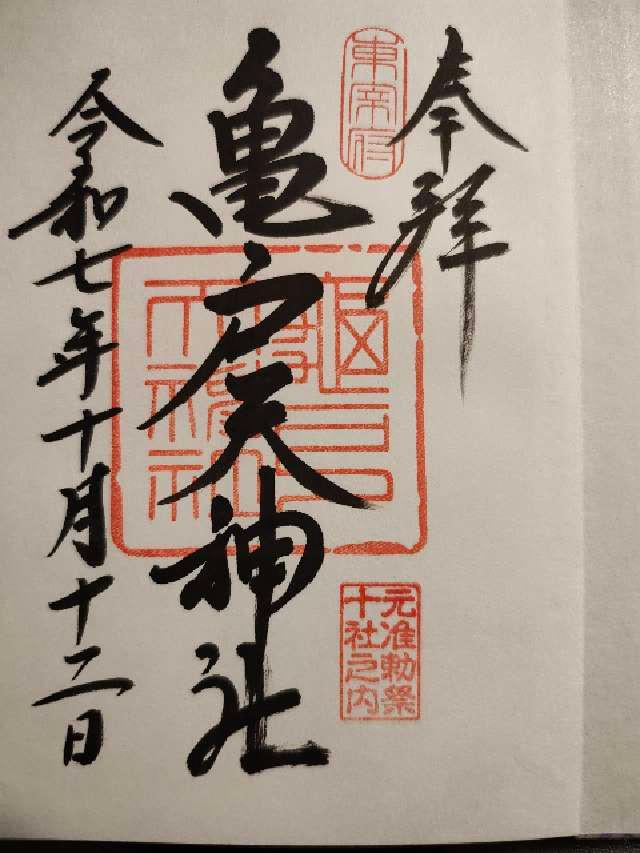 奉拝
東宰府
亀戸天神社
元准勅祭
十社之内
令和七年十月十二日